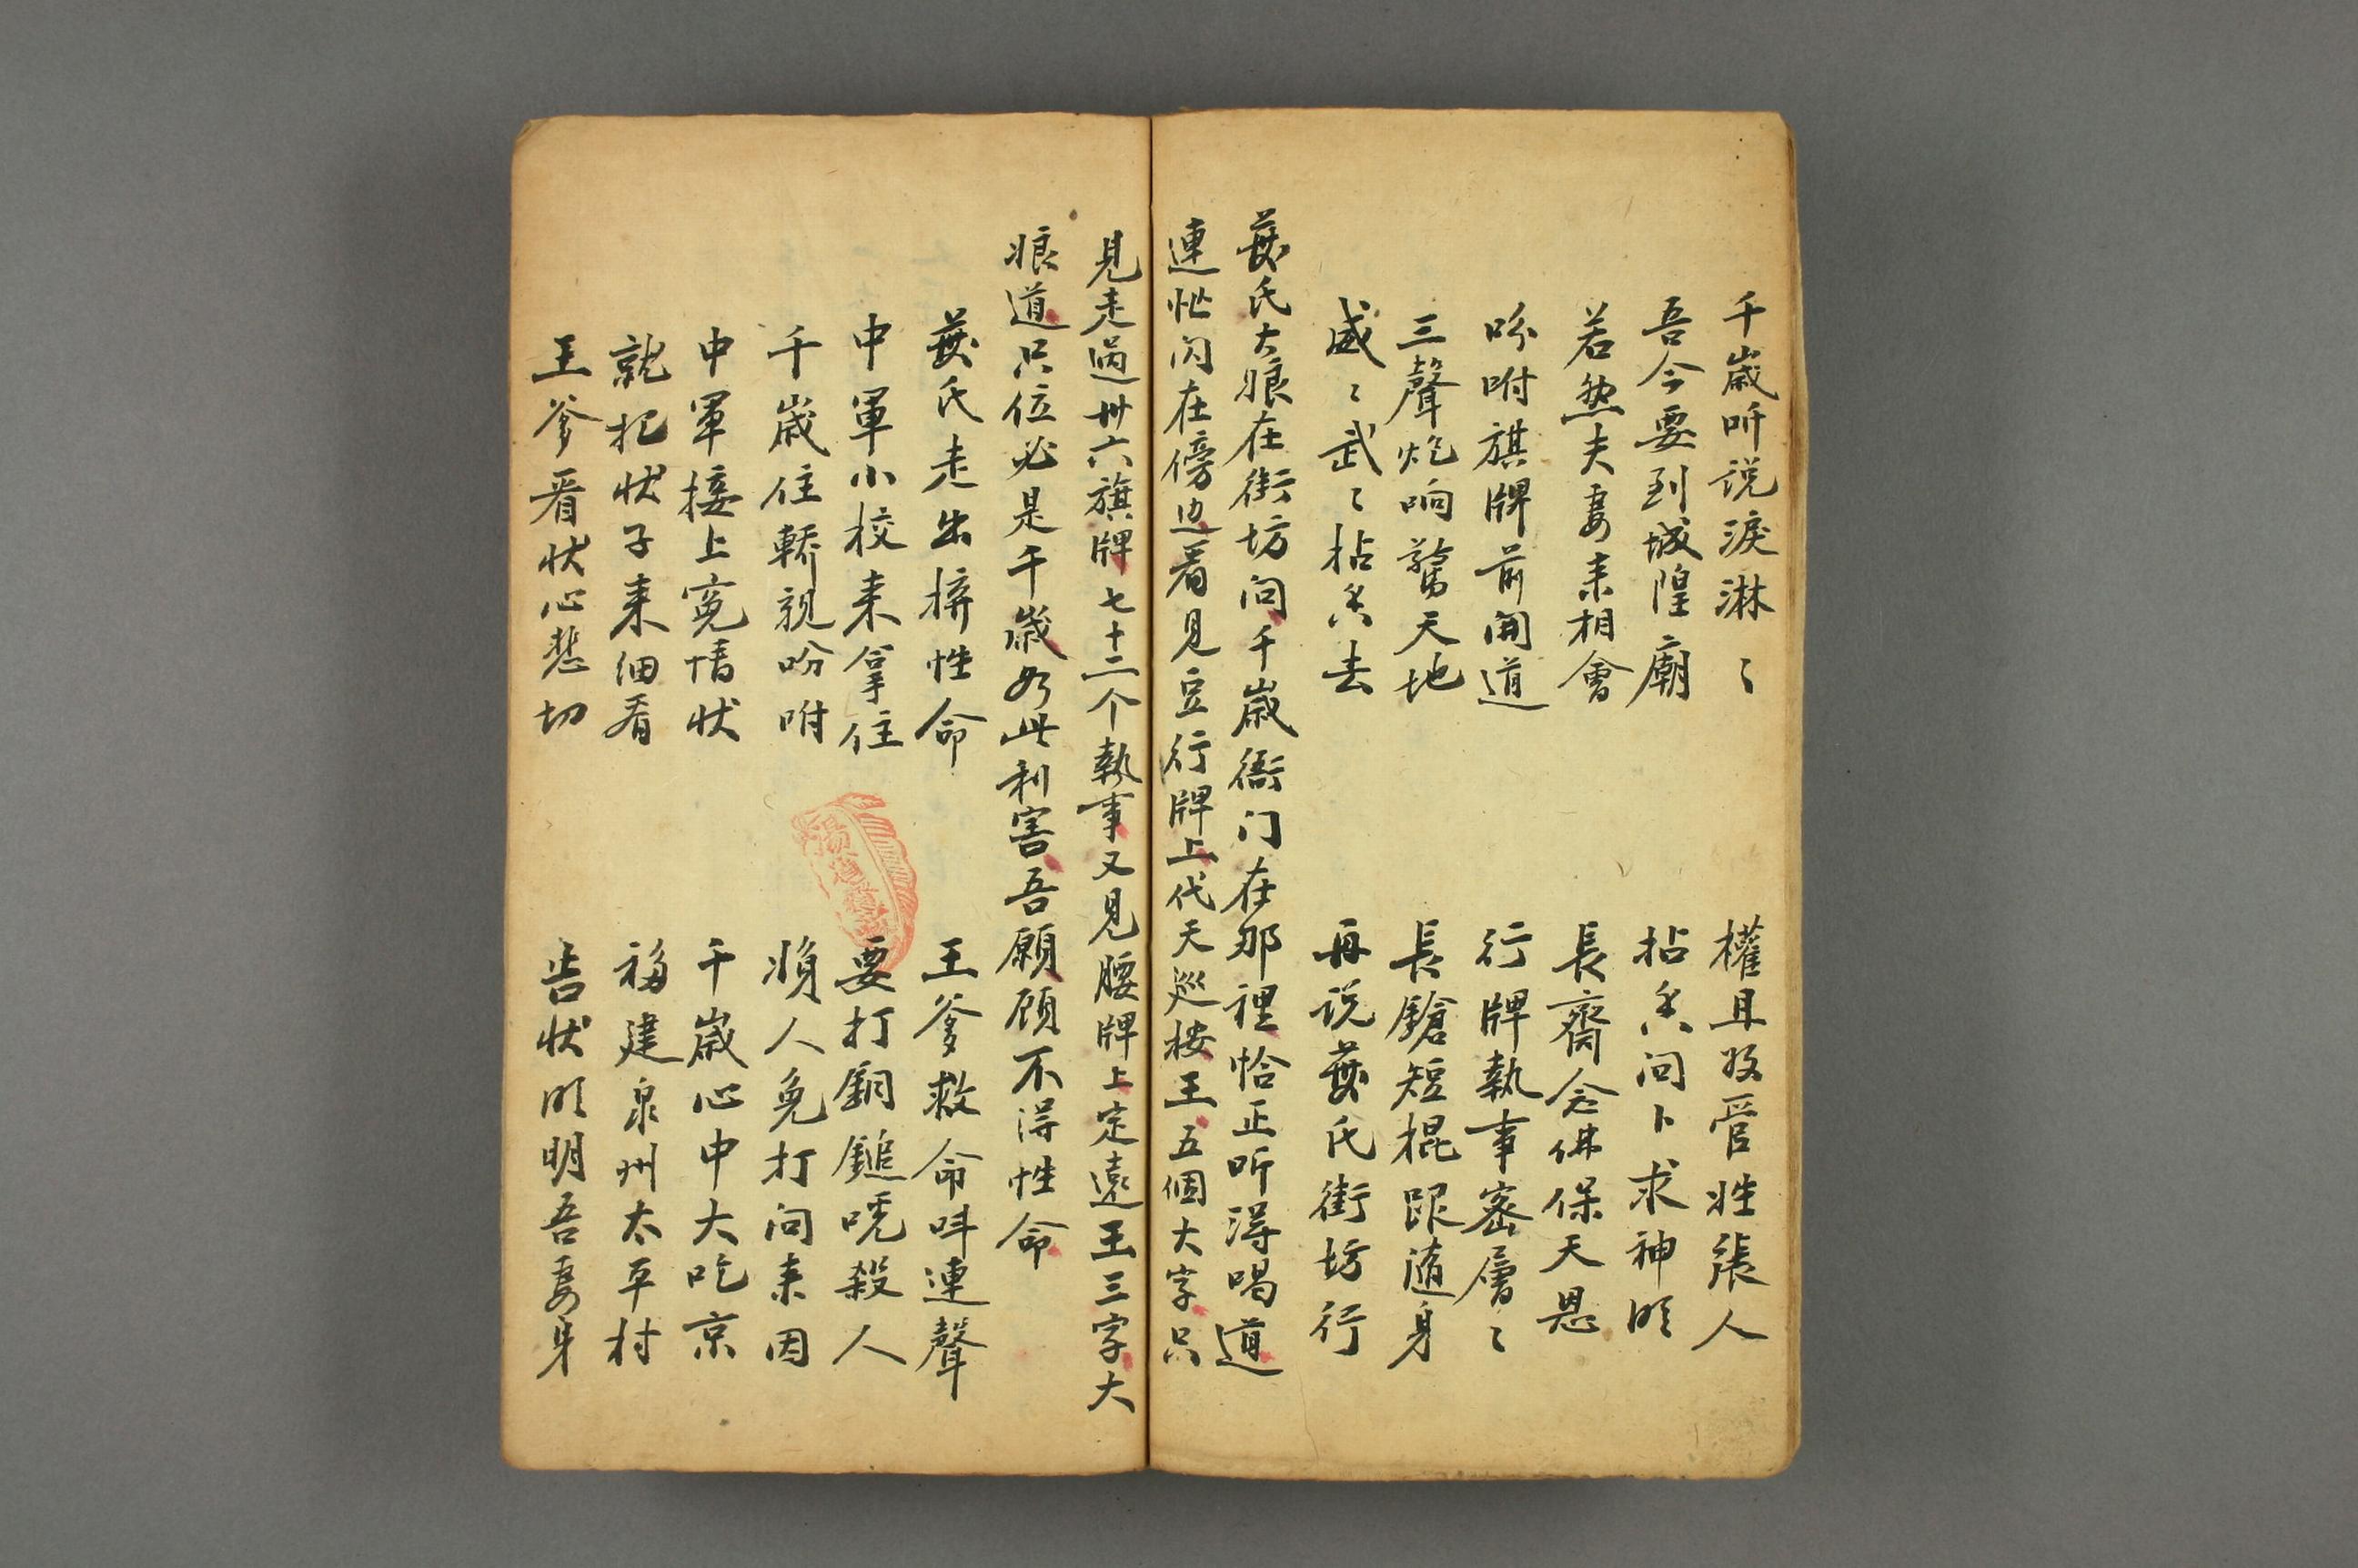 千歲听说淚淋〻　權且收管姓張人
吾今要到城隍廟　拈香问卜求神明
若然夫妻来相會　長齋念佛保天恩
吩咐旗牌前開道　行牌執事密層〻
三聲炮响驚天地　長鎗短棍跟随身
威〻武〻拈香去　再说蔡氏街坊行
蔡氏大娘在街坊问千歲衙门在那裡恰正听得喝道
連忙闪在傍边看見豆行牌上代天巡按王五個大字只
見走過卅六旗牌七十二个執事又見腰牌上定遠王三字大
娘道只位必是千歲如此利害吾願顾不得性命
蔡氏走出拚性命　王爹救命呌連聲
中軍小校来拿住　要打銅鎚唬殺人
千歲住轎親吩咐　婦人免打问来因
中軍接上寃情状　千歲心中大吃京
就把状子来细看　福建泉州太平村
王爹看状心悲切　告状明明吾妻身